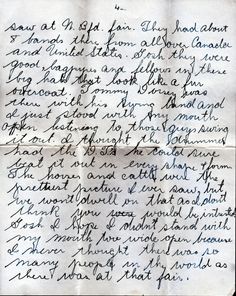 saw at N. Bfd. fair. They had about
8 bands there from all over Canada
and United States. Gosh they were
good bagpipes and fellows in there
big hats that look like a fur
overcoat. Tommy I was
there with his band and
I just stood with my mouth
open listening to those guys swing
it out. I thought the drummer
the he could sure
beat it out in every shape & form
The horses and cattle were the
prettiest picture I ever saw, but
we won't dwell on that as I don't
think you would be intrested
Gosh I hope I didn't stand with
my mouth too wide open because
I never thought there was so
many people in the world as
there was at that fair.